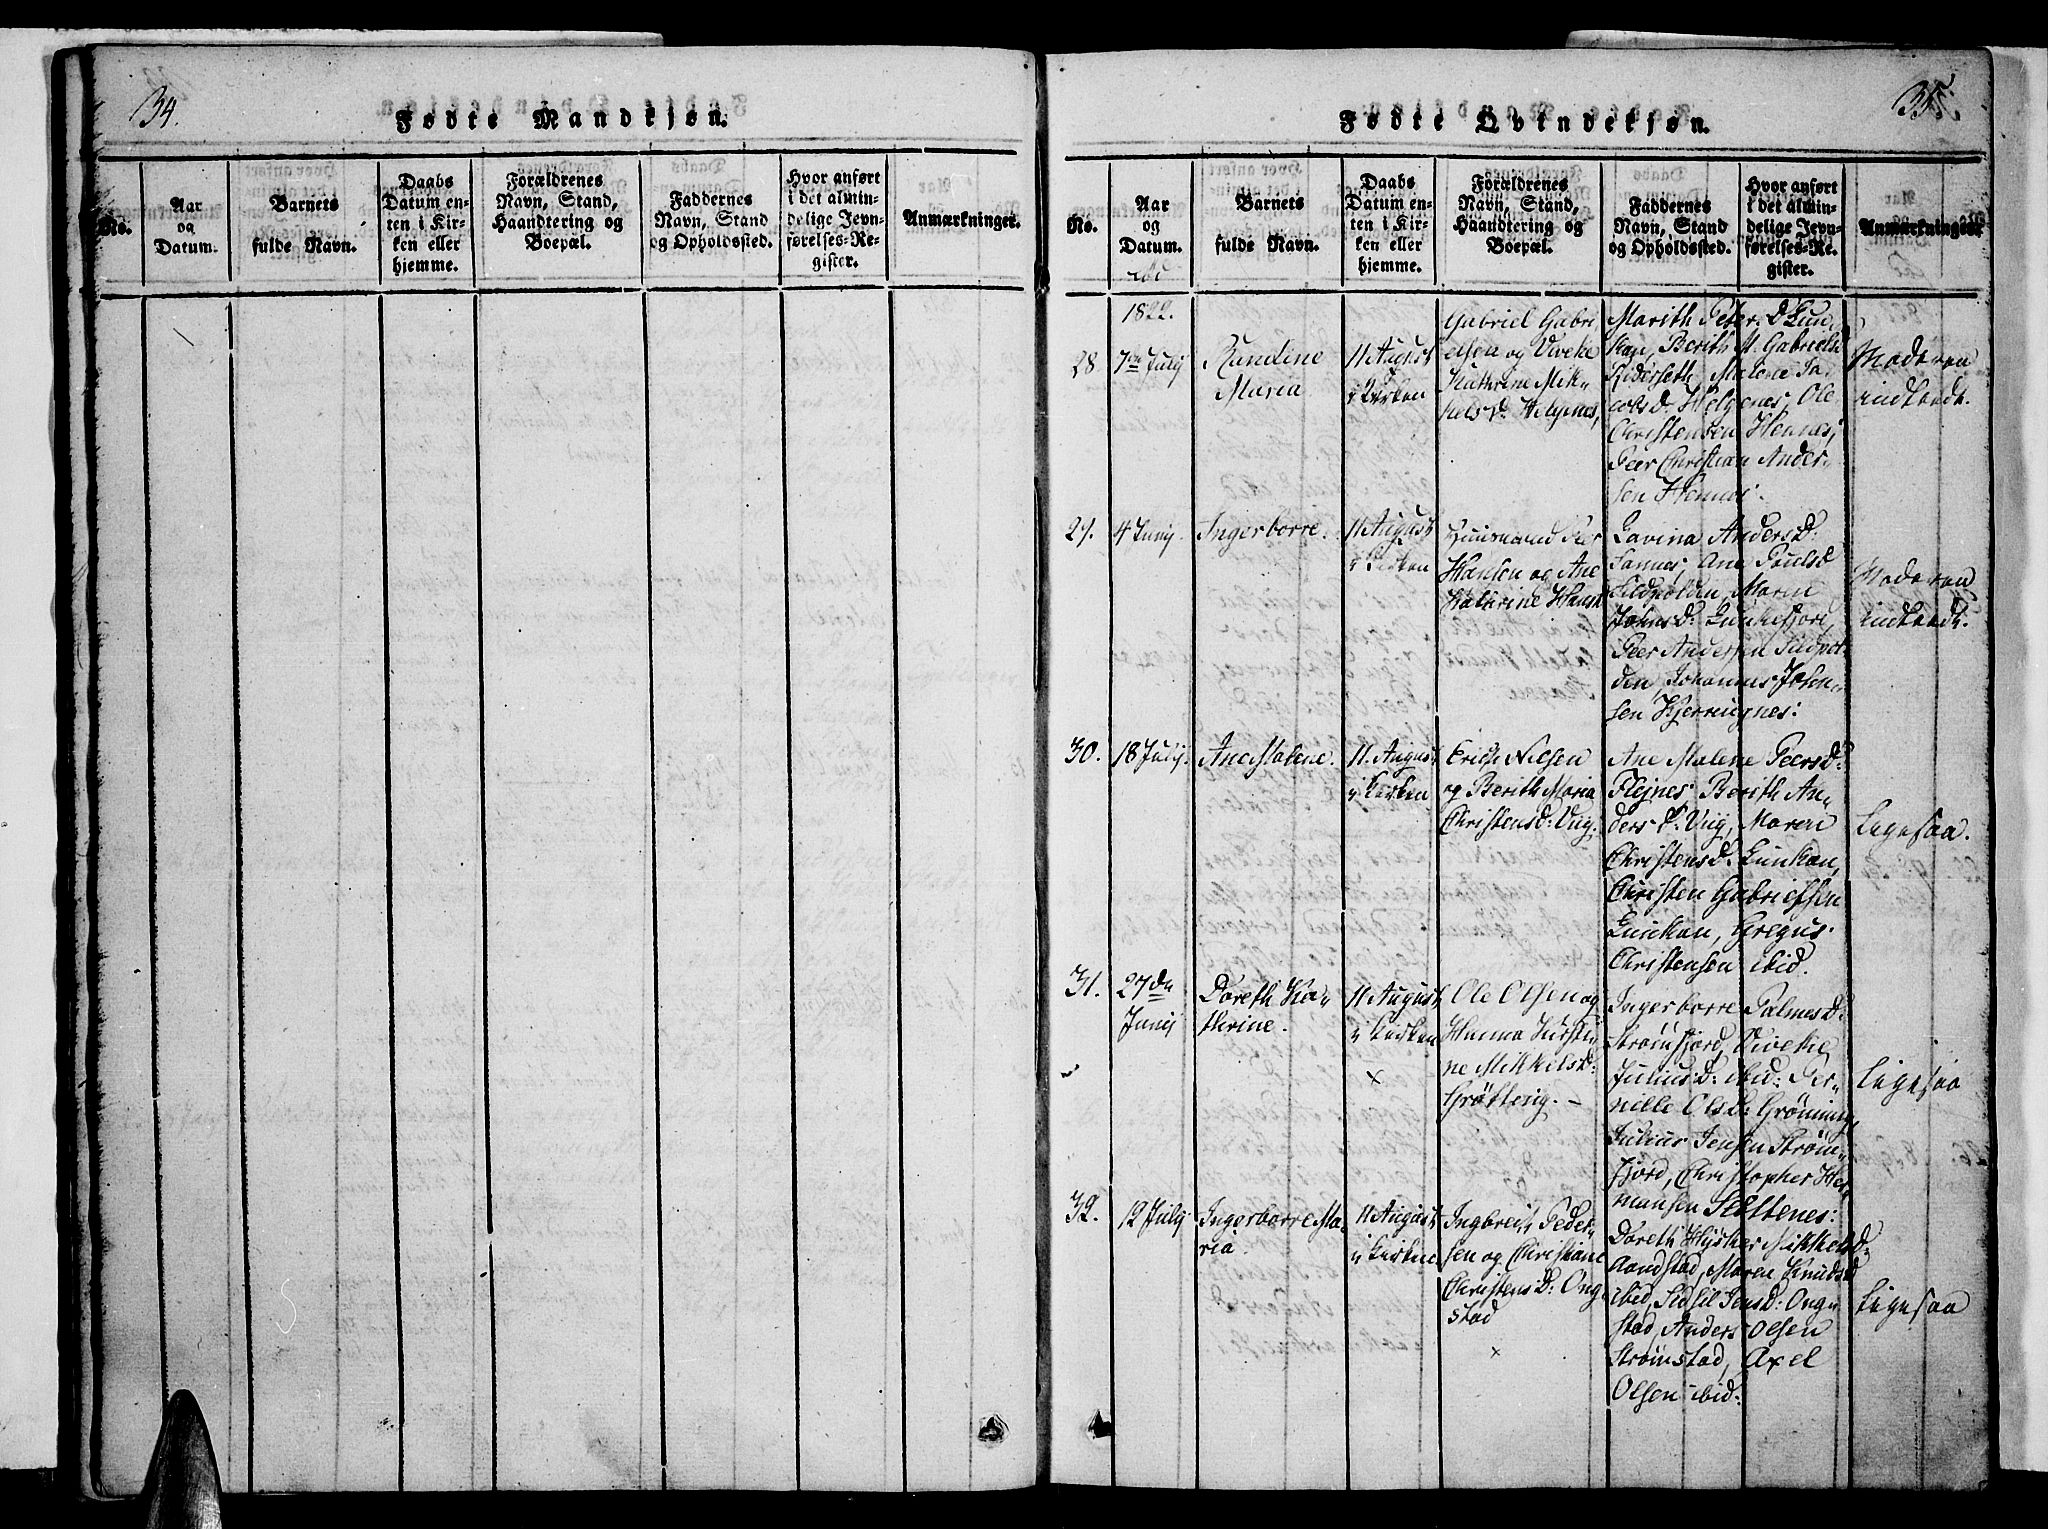 34.
Fødte Mandkjøn.
No.
Aar
og
Datum.
Barnets
fulde Navn.
Daabs
Datum en-
ten i Kir-
ken eller
hjemme.
Forældrenes
Navn, Stand,
Haandtering og
Boepæl.
Faddernes
Navn, Stand
og Opholdssted.
Hvor anført
i det almin-
delige Jevn-
førelses-Re-
gister.
Anmærkninger.
35.
Fødte Qvindekjøn.
No.
Aar
og
Datum.
Barnets
fulde Navn.
Daabs
Datum en-
ten i Kir-
ken eller
hjemme.
Forældrenes
Navn, Stand,
Haandtering og
Boepæl.
Faddernes
Navn, Stand
og Opholdssted.
Hvor anført
i det almin-
delige Jevn-
førelses-Re-
gister.
Anmærkninger
1822.
28
7de Julij
Randine
Maria
11 August
i Kirken
Gabriel Gabri
elsen og Viveke
Kathrine Mik-
kelsd: Helgenes,
Marith Peter.D Lun
kan, Berith M. Gabrielsd
Malene Ja
cobsd. Helgenes, Ole
Christensen Hennes,
Peer Christian Ander-
sen Hennes.
Moderen
indledt.
29.
4 Junij.
Ingerborre.
11 August
i Kirken
Huusmand Peer
Hansen og Ane
Kathrine Hansd
Lavina AndersD:
Sannes, Ane Poulsd
Maren
JohnsD: Lunkefjord,
Peer Andersen Sildpol
den, Johannes Johan-
sen Kjerringnes:
Moderen
indledt.
30.
18 Julij.
Ane Malene.
11. August
i Kirken
Erich Nilsen
og Berith Maria
Christensd: Vug.
Ane Malene PeersD:
Flejnes Berith An-
dersd: Vug, Maren
ChristensD: Lunkan,
Christen Gabrielsen
Lunkan, Gregus
Christensen ibid.
Ligesaa.
31.
27de
Junij
Doreth Ka-
thrine.
11 August
i Kirken
x
Ole Olsen og
Hanna Kirsti
ne MikkelsD:
Grøtting. –
Ingerborre PalmesD:
Strømfjord, Viveke
Julius:D: ibid: Per-
nille OlsD: Grønning,
Julius Jensen Strøm-
fjord, Christopher Her
mansen Slettenes:
Ligesaa
32.
12 Julij
Ingerborre Ma-
ria.
11 August
i Kirken
Ingbregt Peder-
sen og Christiane
ChristensD: Ong-
stad
x
Doreth Hysker MikkelsD:
Aandstad, Maren Knudsd
ibid, Sidsil JensD: Ong-
stad, Anders Olsen
Strømstad, Axel
Olsen ibid:
Ligesaa